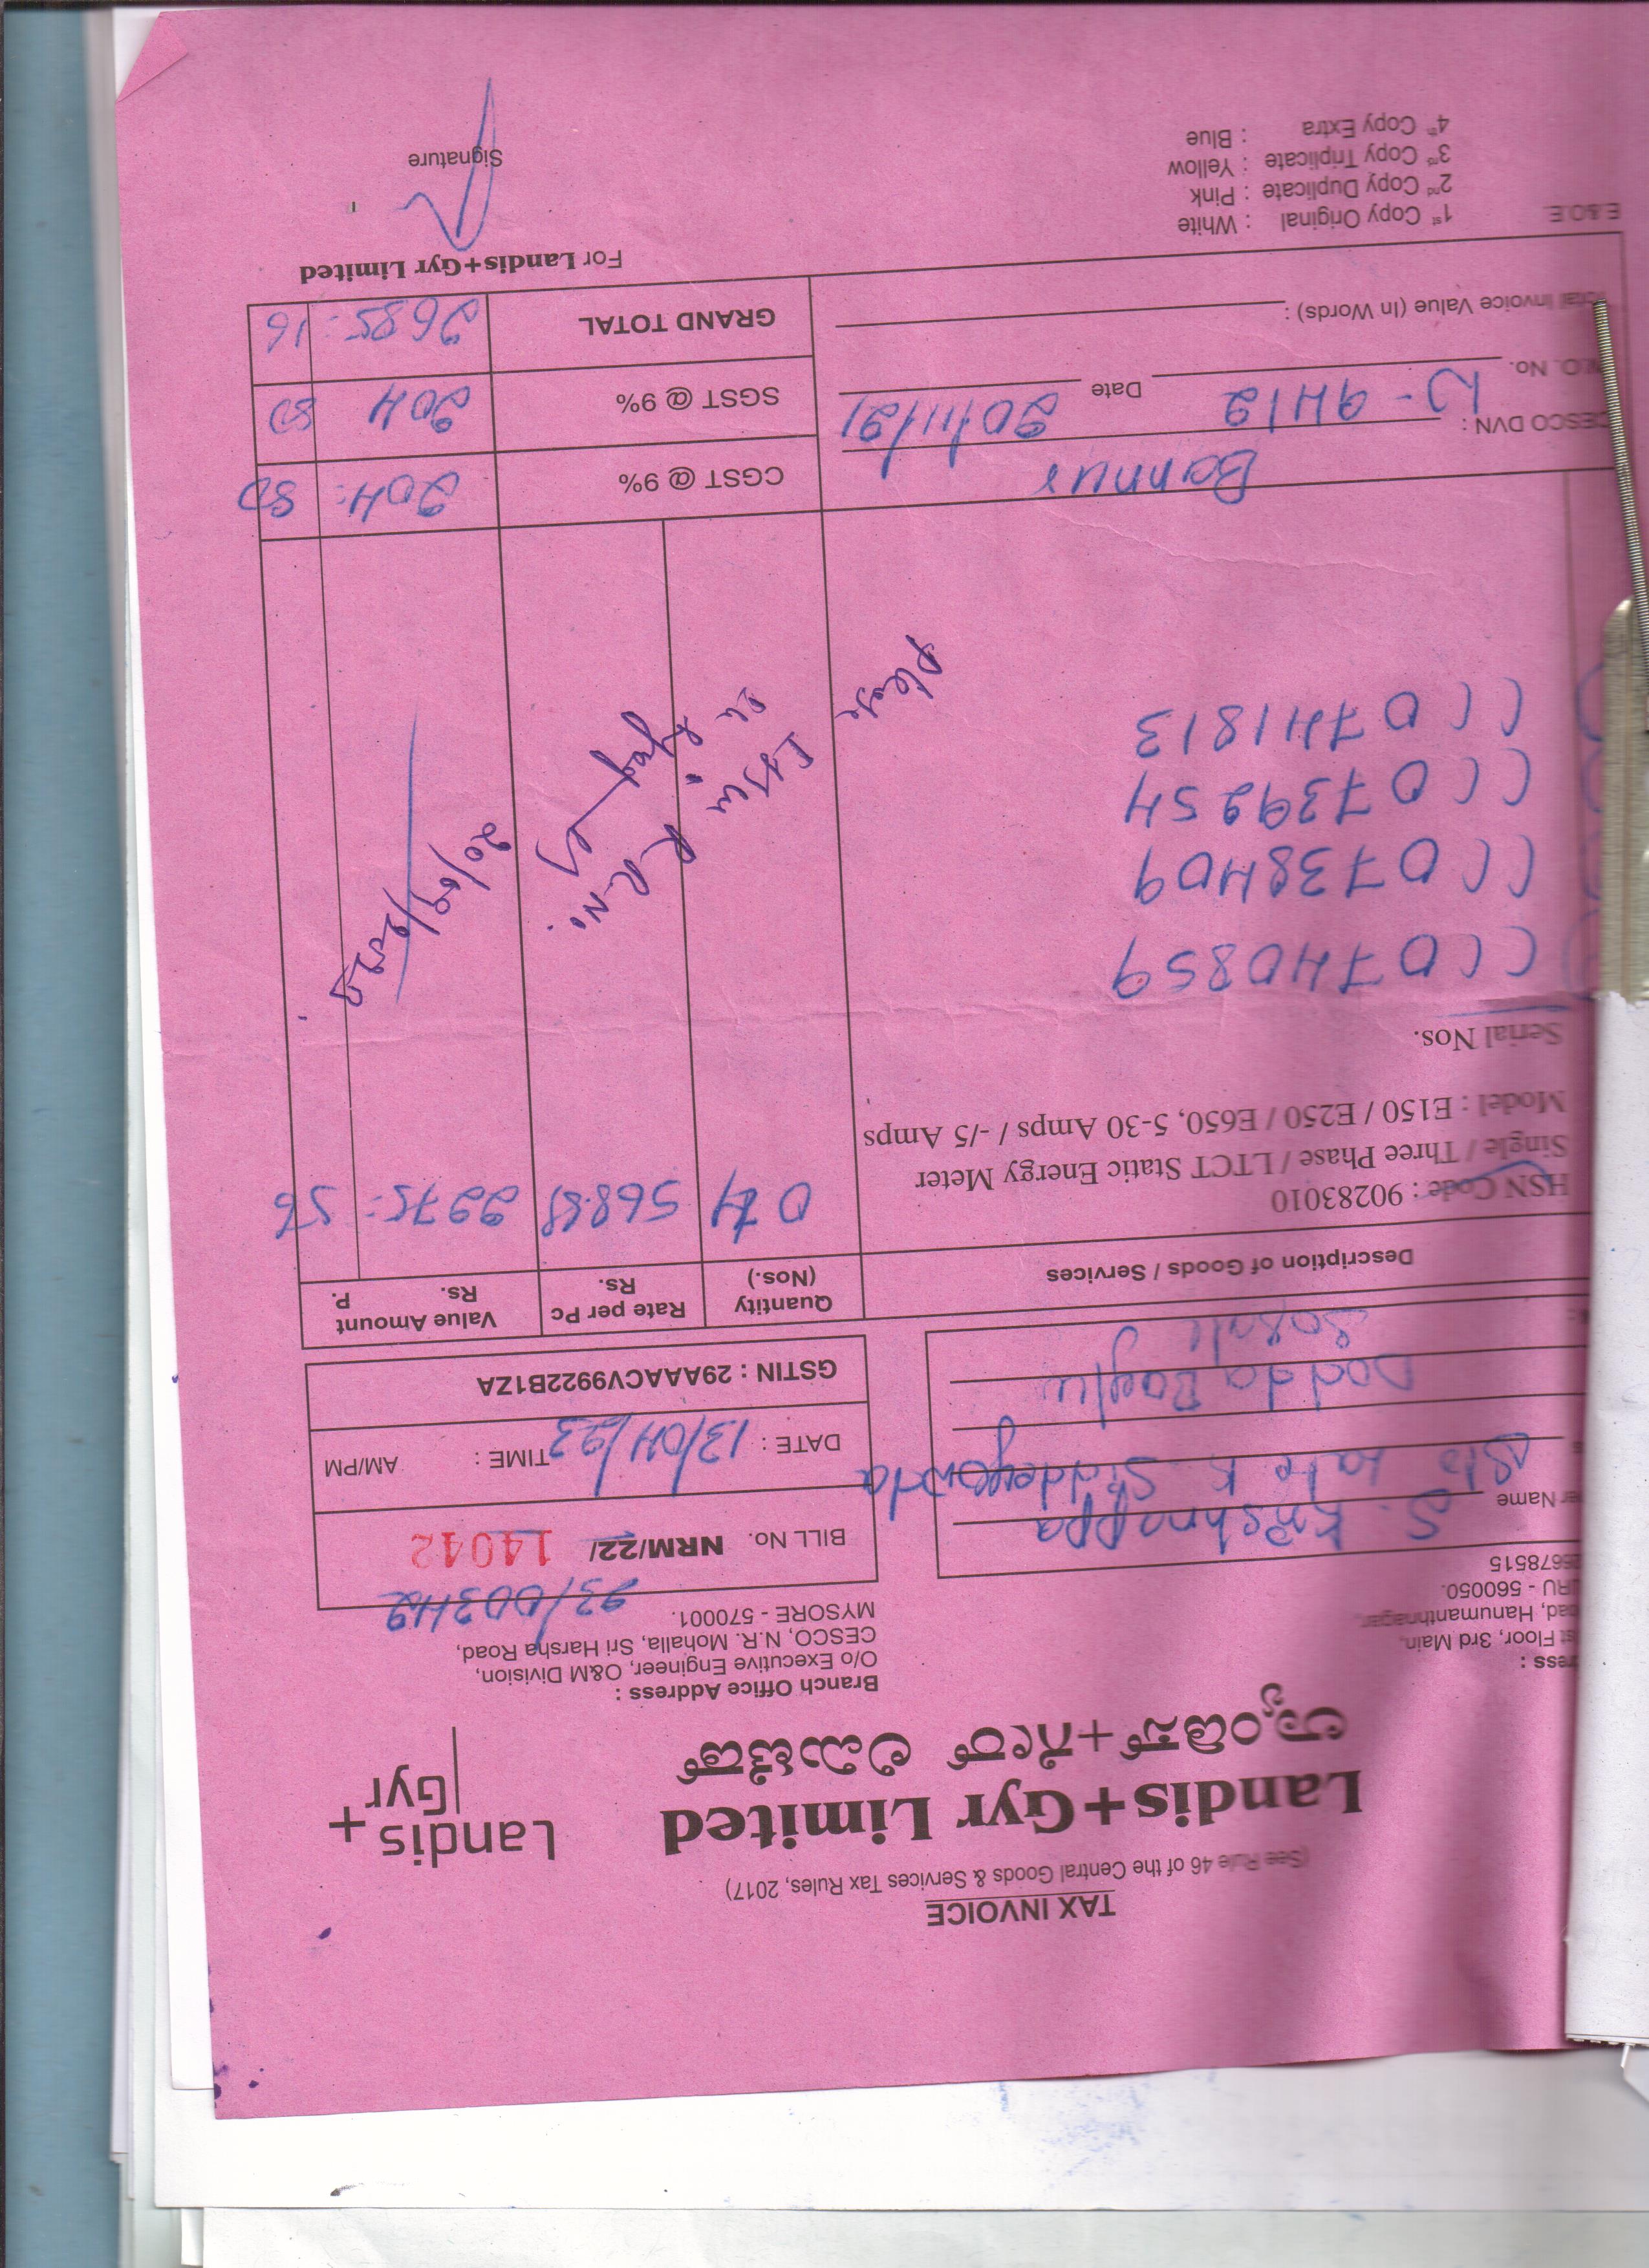 TAX INVOICE
(See Rule 46 of the Central Goods & Services Tax Rules, 2017)
Landis+Gyr Limited
ಲ್ಯಾಂಡಿಸ್+ಗೇರ್ ಲಿಮಿಟೆಡ್
Landis
Gyr
+
ress :
st Floor, 3rd Main,
oad, Hanumanthnagar,
URU - 560050.
26678515
Branch Office Address :
O/o Executive Engineer, O&M Division,
CESCO, N.R. Mohalla, Sri Harsha Road,
MYSORE - 570001.
23/003442
BILL No. NRM/22/ 14042
DATE : 13/04/23 TIME : AM/PM
GSTIN : 29AAACV9922B1ZA
er Name S. Krishnappa
S/o Late K Siddegowda
Dodda Baglu
Sosale
Description of Goods / Services
Quantity (Nos.)
Rate per Pc Rs.
Value Amount Rs. P.
HSN Code : 90283010
Single / Three Phase / LTCT Static Energy Meter
Model : E150 / E250 / E650, 5-30 Amps / -/5 Amps
04 568.89 2275: 56
Serial Nos.
CC0740859
CC0738409
CC0739254
CC0741813
Please
R R No.
20/09/2023
CESCO DVN : Bannur
W.O. No. W-9412 Date 20/11/21
Total Invoice Value (In Words) :
CGST @ 9% 204: 80
SGST @ 9% 204 80
GRAND TOTAL 2685: 16
E.&O.E.
For Landis+Gyr Limited
1st Copy Original : White
2nd Copy Duplicate : Pink
3rd Copy Triplicate : Yellow
4th Copy Extra : Blue
Signature